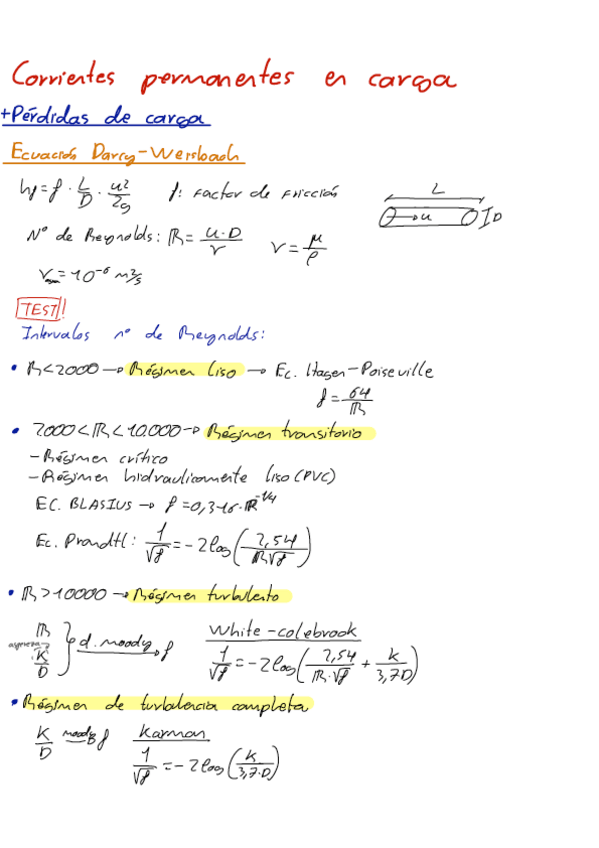 Corrientes permanentes en carga
+Pérdidas de carga
Ecuación Darcy-Weisbach
hf = f · L/D · u²/2g   f: Factor de Fricción
L
u
D
Nº de Reynolds: R = u·D/ν   ν = μ/ρ
= 10⁻⁶ m²/s
TEST!!
Intervalos nº de Reynolds:
• R<2000 → Régimen liso → Ec. Hagen-Poiseville
f = 64/R
• 2000<R<10.000 → Régimen transitorio
- Régimen crítico
- Régimen hidraulicamente liso (PVC)
EC. BLASIUS → f = 0,316·R^-1/4
Ec. Prandtl: 1/√f = -2log(2,54/R√f)
• R>10000 → Régimen turbulento
R
K/D } d. moody → f
White-colebrook
1/√f = -2log(2,54/R·√f + K/3,7D)
• Régimen de turbulencia completa
K/D moody → f   Karman
1/√f = -2log(K/3,7·D)